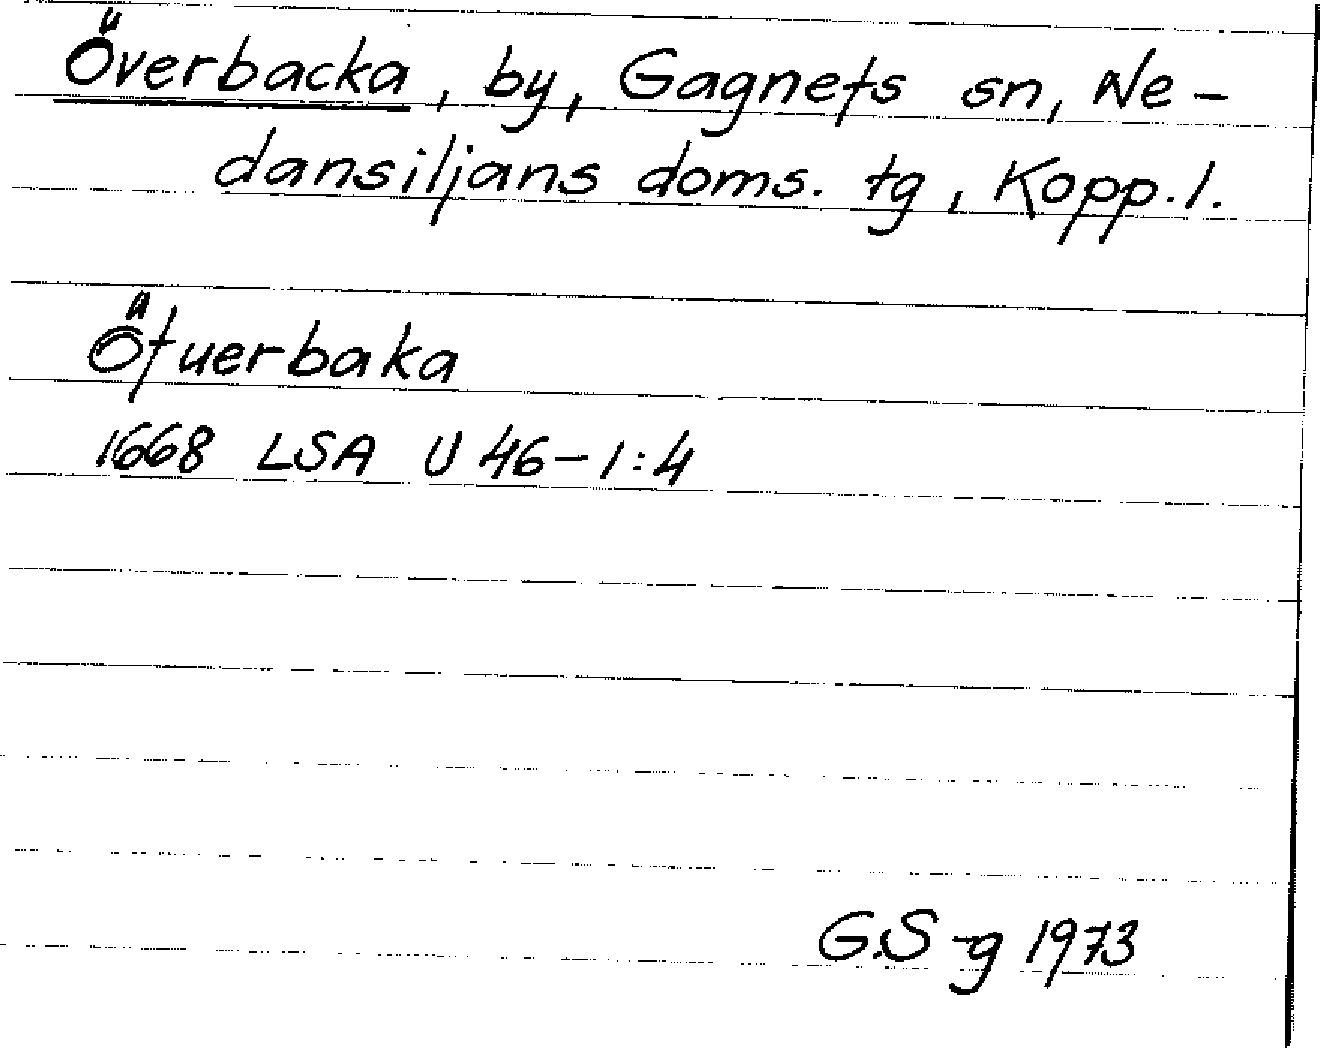 Överbacka, by, Gagnefs sn, Ne-
dansiljans doms. tg, Kopp. l.
Öfuerbaka
1668 LSA U 46-1:4
G.S-g 1973